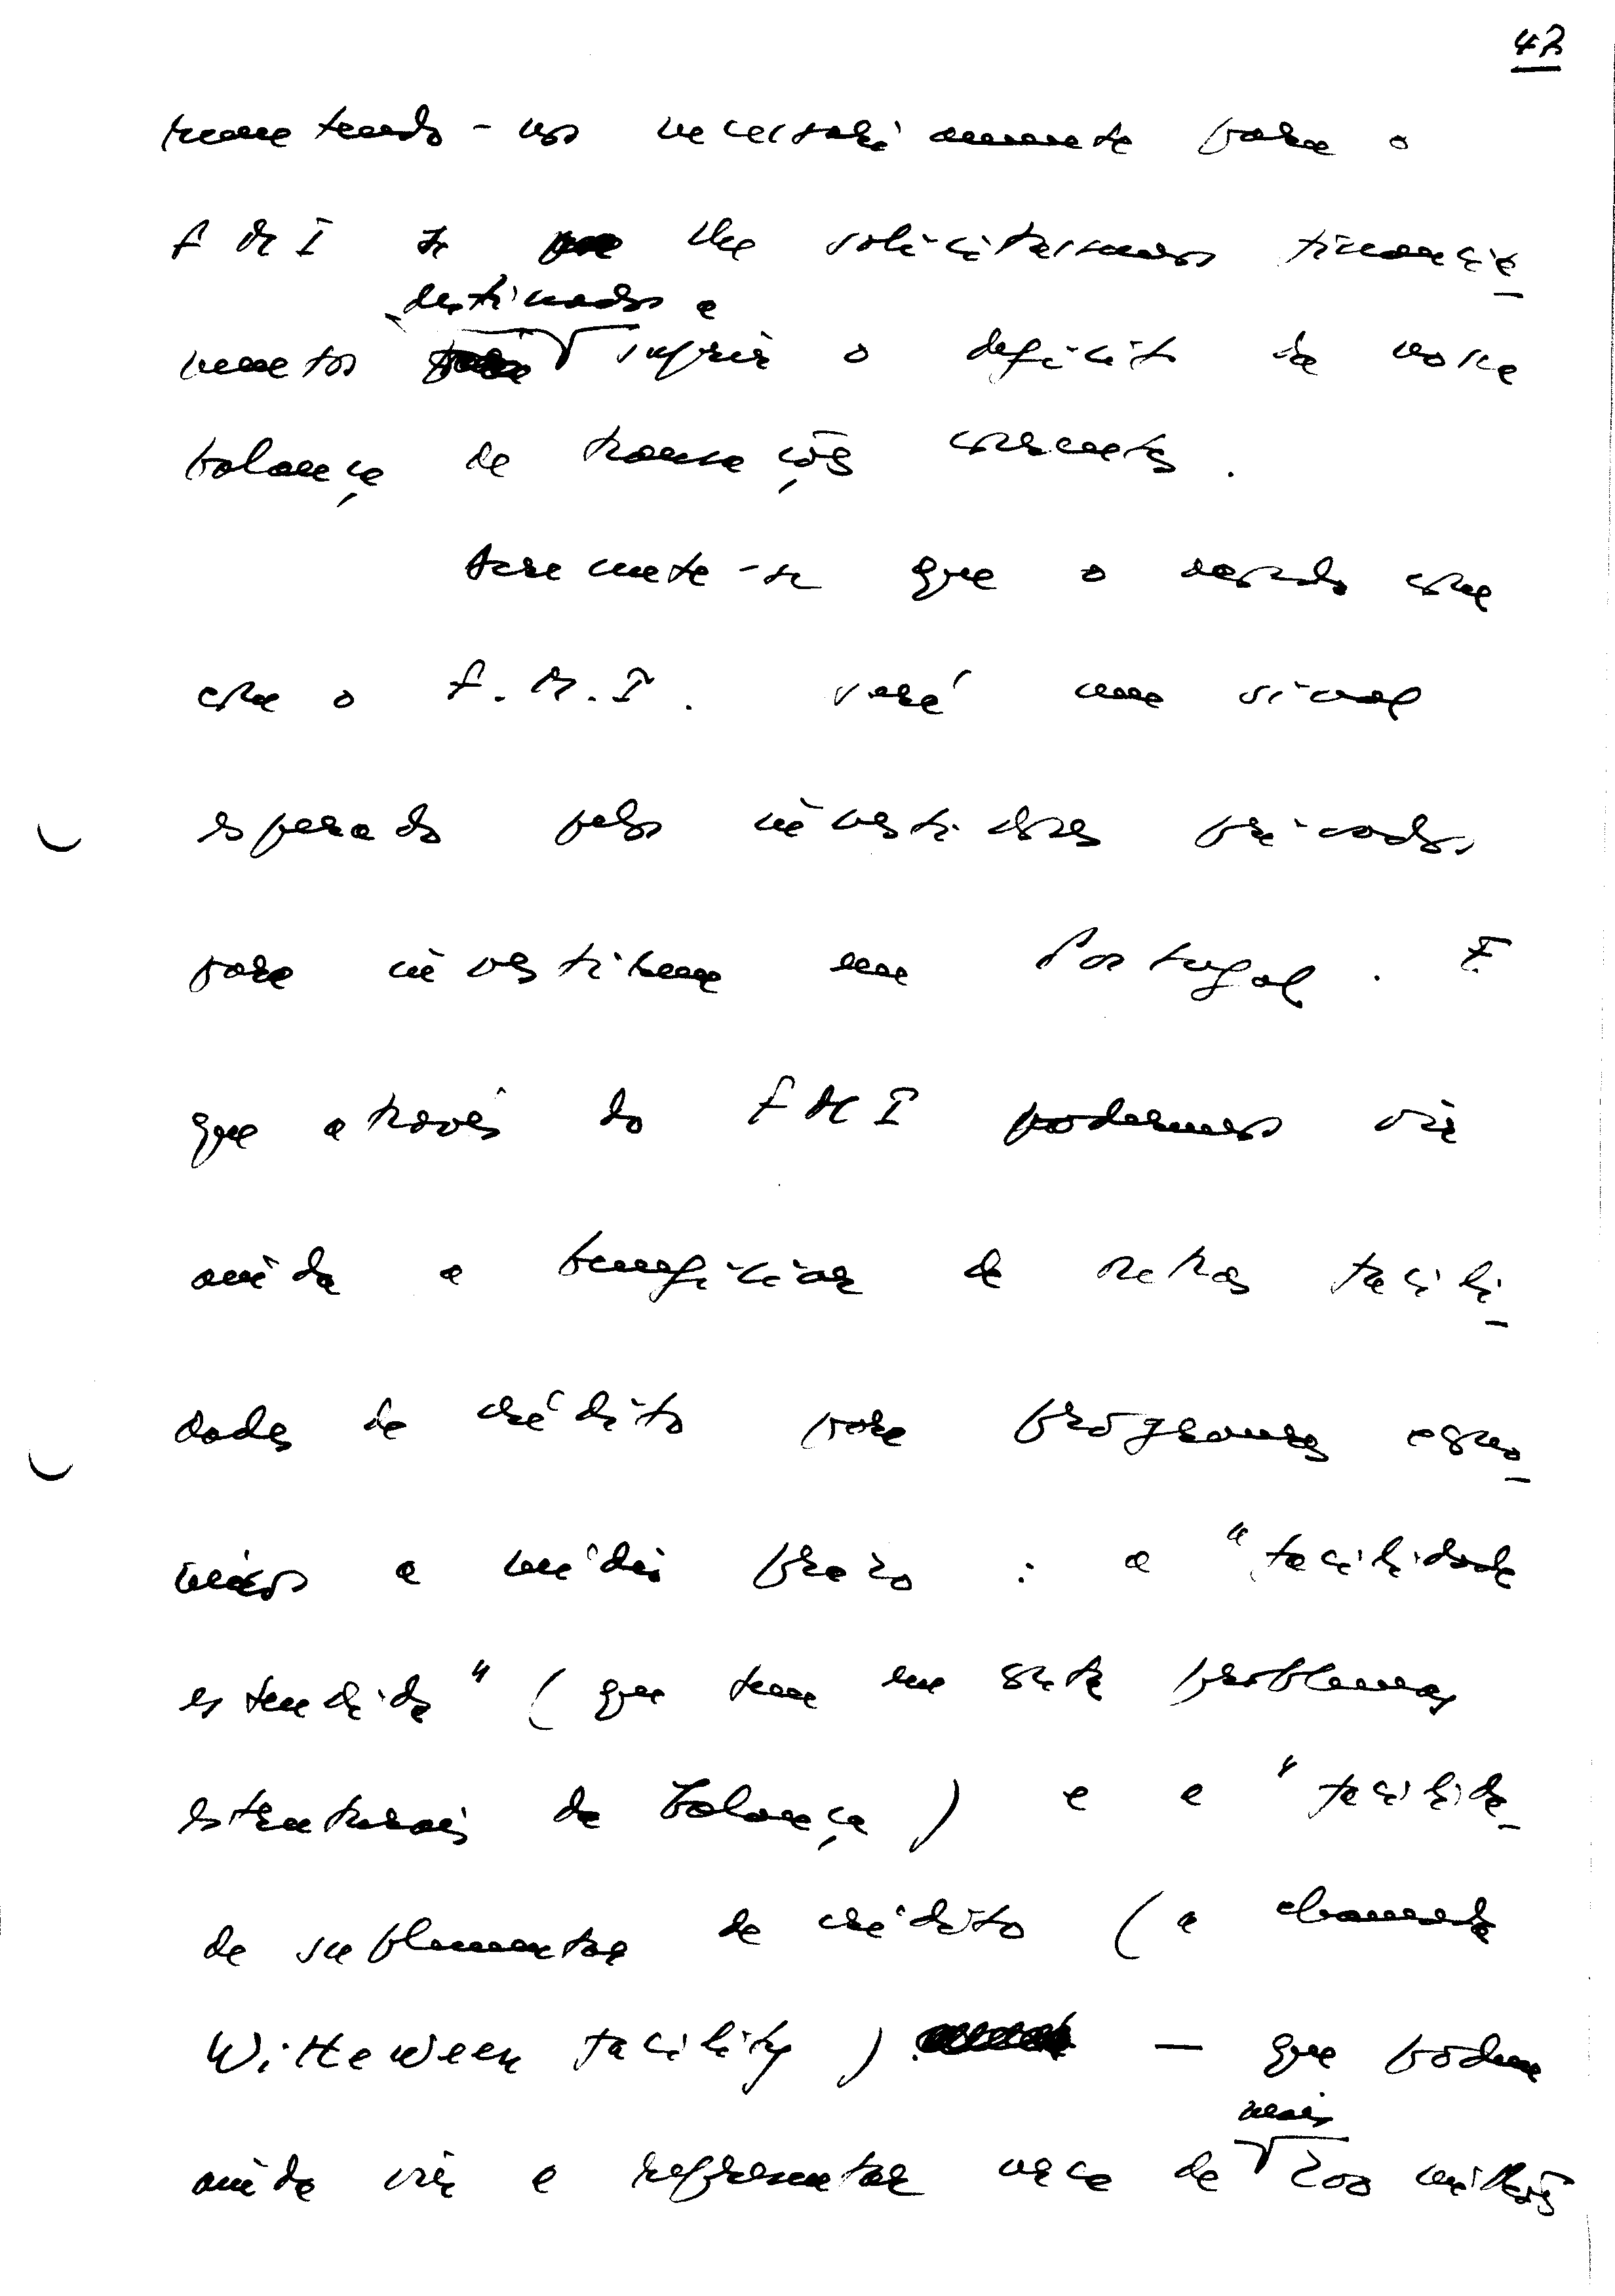 42
remetendo-nos necessariamente para o
FMI se lhe solicitarmos financia-
destinados a
mentos suprir o deficit da nossa
balança de transações correntes.
Acrescente-se que o acordo com
com o F.M.I. será um sinal
esperado pelos investidores privados
para investirem em Portugal. E
que através do FMI poderemos vir
ainda a beneficiar de outras facili-
dades de crédito para programas econó-
micos a médio prazo : a "facilidade
estendida" (que tem em vista problemas
estruturais da balança) e a "facilida-
de suplementar de crédito (a chamada
Witteween facility) — que podem
mais
ainda vir a representar cerca de 200 milhões